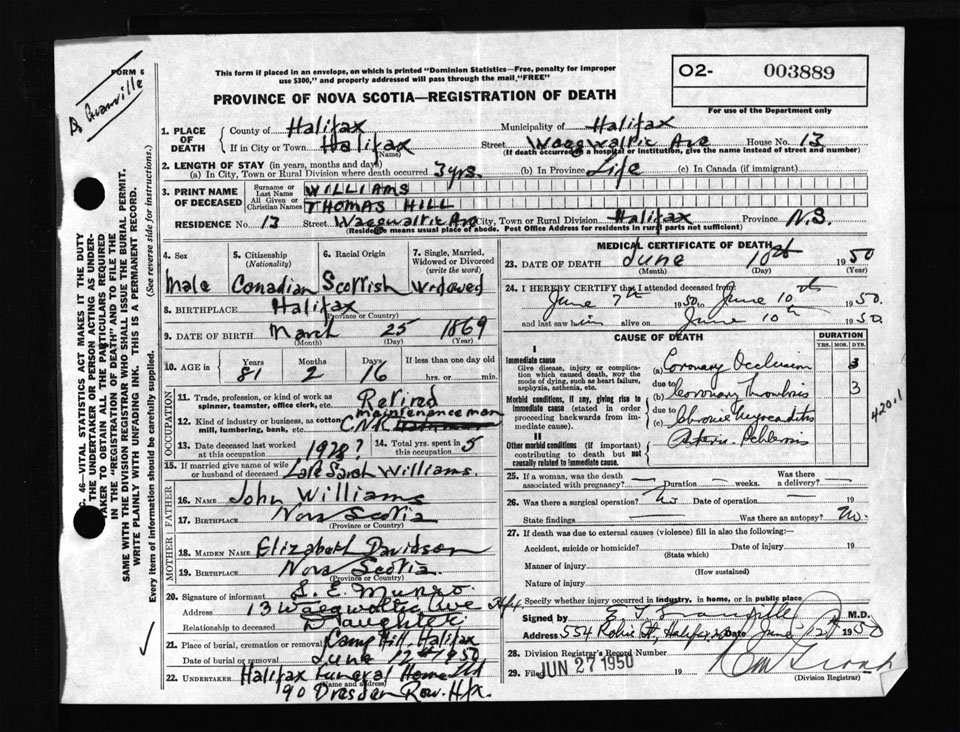 Dr Granville
FORM 6
This form if placed in an envelope, on which is printed "Dominion Statistics—Free, penalty for improper
use $300," and properly addressed will pass through the mail "FREE"
PROVINCE OF NOVA SCOTIA—REGISTRATION OF DEATH
O2- 003889
For use of the Department only
C. 46—VITAL STATISTICS ACT MAKES IT THE DUTY
OF THE UNDERTAKER OR PERSON ACTING AS UNDER-
TAKER TO OBTAIN ALL THE PARTICULARS REQUIRED
IN THE "REGISTRATION OF DEATH" AND TO FILE THE
SAME WITH THE DIVISION REGISTRAR WHO SHALL ISSUE THE BURIAL PERMIT.
WRITE PLAINLY WITH UNFADING INK. THIS IS A PERMANENT RECORD.
Every item of information should be carefully supplied. (See reverse side for instructions.)
1. PLACE OF DEATH
County of Halifax Municipality of Halifax
If in City or Town Halifax Street Waegwaltic Ave House No. 13
(Name) (If death occurred in a hospital or institution, give the name instead of street and number)
2. LENGTH OF STAY (in years, months and days)
(a) In City, Town or Rural Division where death occurred 3 yrs. (b) In Province Life (c) In Canada (if immigrant)
3. PRINT NAME OF DECEASED
Surname or Last Name WILLIAMS
All Given or Christian Names THOMAS HILL
RESIDENCE No. 13 Street Waegwaltic Ave City, Town or Rural Division Halifax Province N.S.
(Residence means usual place of abode. Post Office Address for residents in rural parts not sufficient)
4. Sex 5. Citizenship (Nationality) 6. Racial Origin 7. Single, Married, Widowed or Divorced (write the word)
Male Canadian Scottish Widowed
8. BIRTHPLACE Halifax
(Province or Country)
9. DATE OF BIRTH March 25 1869
(Month) (Day) (Year)
10. AGE in Years Months Days If less than one day old
81 2 16 hrs. or min.
OCCUPATION
11. Trade, profession or kind of work as spinner, teamster, office clerk, etc. Retired
maintenance man
12. Kind of industry or business, as cotton mill, lumbering, bank, etc. C.N.R.
13. Date deceased last worked at this occupation 1928? 14. Total yrs. spent in 5
15. If married give name of wife or husband of deceased Late Sarah Williams.
FATHER
16. NAME John Williams
17. BIRTHPLACE Nova Scotia
(Province or Country)
MOTHER
18. MAIDEN NAME Elizabeth Davidson
19. BIRTHPLACE Nova Scotia.
(Province or Country)
20. Signature of informant S. E. Munro.
Address 13 Waegwaltic Ave Hfx
Relationship to deceased Daughter
21. Place of burial, cremation or removal Camp Hill, Halifax
Date of burial or removal June 12th 1950
22. UNDERTAKER Halifax Funeral Home Ltd
(Name and address)
90 Dresden Row. Hfx.
MEDICAL CERTIFICATE OF DEATH
23. DATE OF DEATH June 10th 1950
(Month) (Day) (Year)
24. I HEREBY CERTIFY that I attended deceased from
June 7th 1950 to June 10th 1950.
and last saw him alive on June 10th 1950.
CAUSE OF DEATH DURATION
YRS. MOS. DYS.
I
Immediate cause
Give disease, injury or complication which caused death, NOT the mode of dying, such as heart failure, asphyxia, asthenia, etc.
(a) Coronary Occlusion 3
due to
Morbid conditions, if any, giving rise to immediate cause (stated in order proceeding backwards from immediate cause).
(b) Coronary Thrombosis 3
due to
(c) Chronic Myocarditis
420.1
II
Other morbid conditions (if important) contributing to death but not causally related to immediate cause.
Arterio-Sclerosis
25. If a woman, was the death associated with pregnancy? — Duration — weeks. Was there a delivery? —
26. Was there a surgical operation? No Date of operation — 19
State findings Was there an autopsy? No.
27. If death was due to external causes (violence) fill in also the following:
Accident, suicide or homicide? Date of injury 19
(State which)
Manner of injury
(How sustained)
Nature of injury
Specify whether injury occurred in industry, in home, or in public place
Signed by E. F. Granville M.D.
Address 554 Robie St, Halifax Date June 12th 1950
28. Division Registrar's Record Number
29. Filed JUN 27 1950
(Division Registrar)